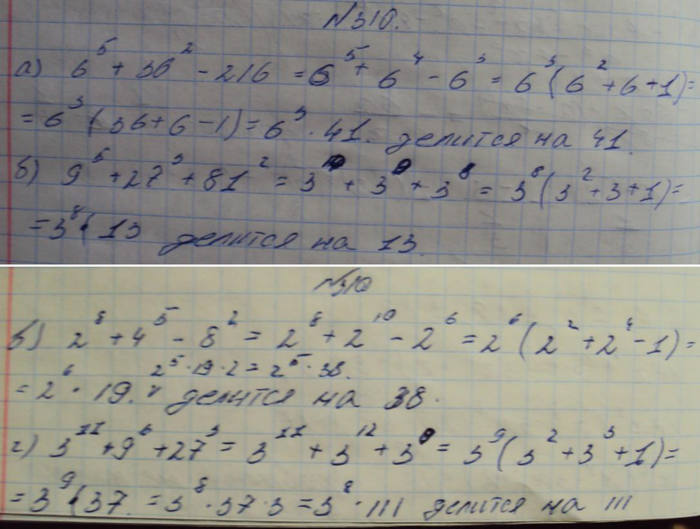 №310.
а) 6⁵ + 36² - 216 = 6⁵ + 6⁴ - 6³ = 6³(6² + 6 + 1) =
= 6³(36 + 6 - 1) = 6³ · 41. делится на 41.
б) 9⁵ + 27³ + 81² = 3¹⁰ + 3⁹ + 3⁸ = 3⁸(3² + 3 + 1) =
= 3⁸ · 13 делится на 13.
№310
в) 2⁸ + 4⁵ - 8² = 2⁸ + 2¹⁰ - 2⁶ = 2⁶(2² + 2⁴ - 1) =
2⁵ · 19 · 2 = 2⁵ · 38.
= 2⁶ · 19. делится на 38.
г) 3¹¹ + 9⁶ + 27³ = 3¹¹ + 3¹² + 3⁹ = 3⁹(3² + 3³ + 1) =
= 3⁹ · 37. = 3⁸ · 37 · 3 = 3⁸ · 111 делится на 111